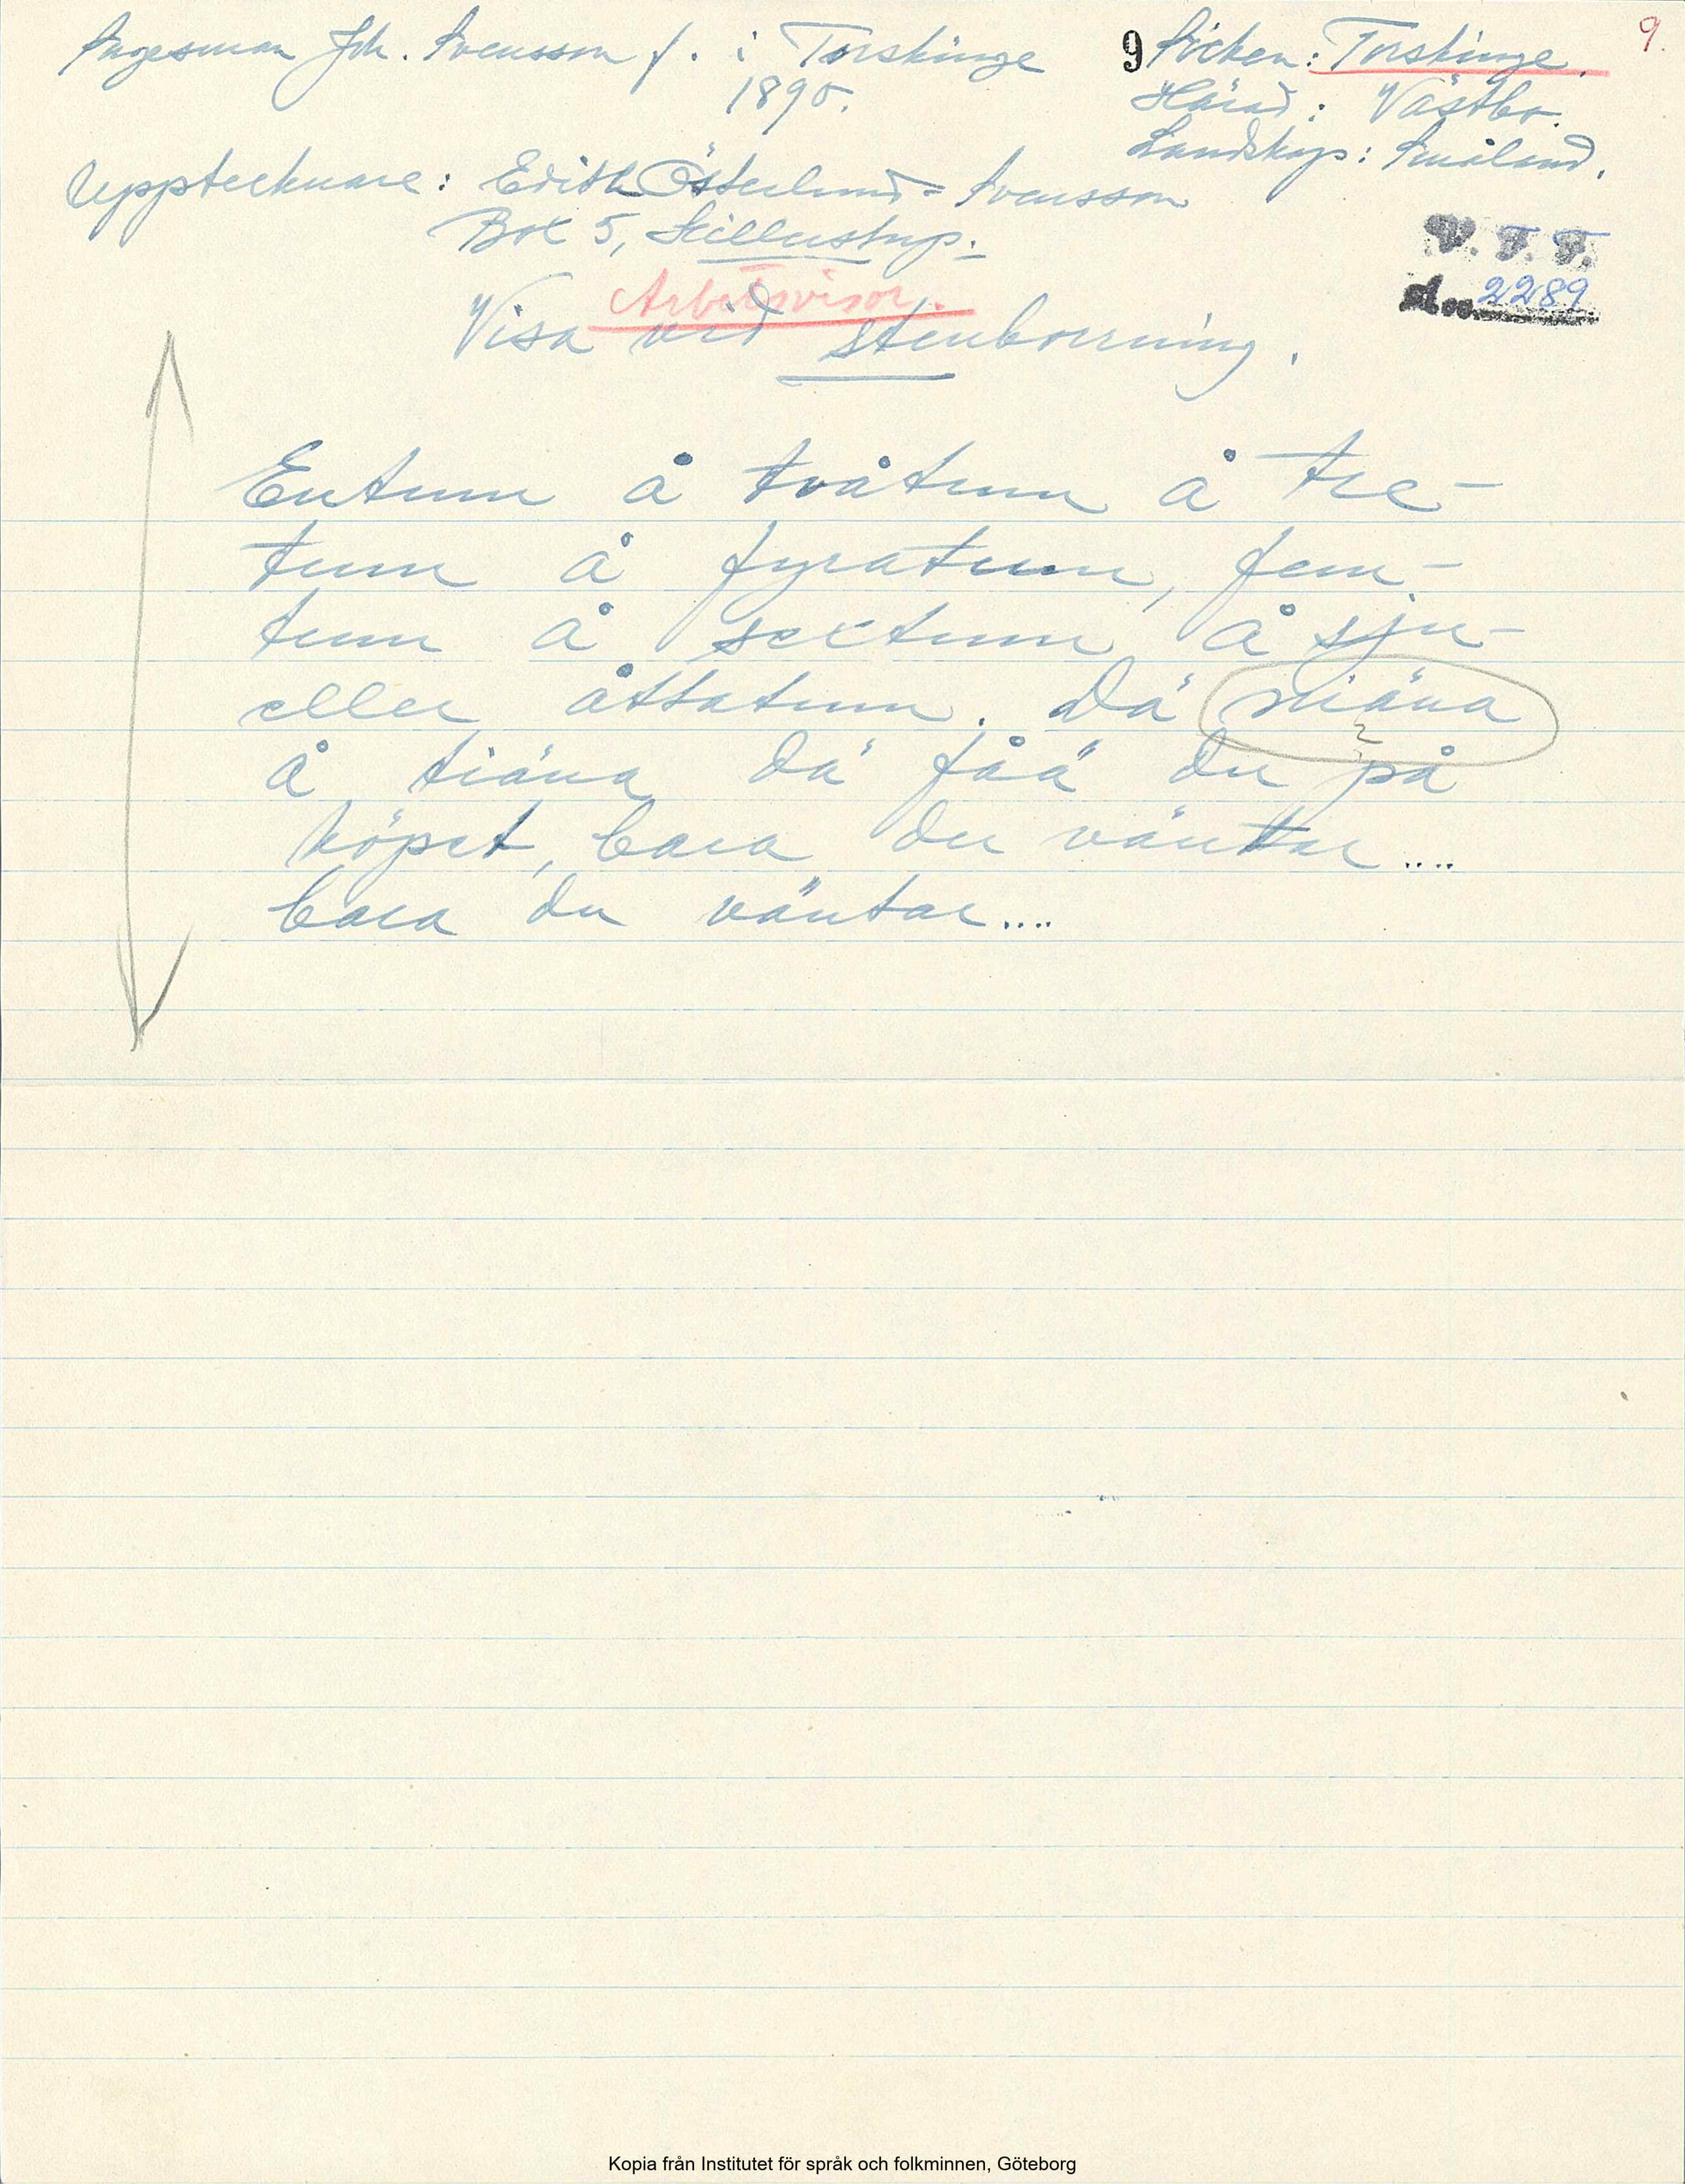 Sagesman Joh. Svensson f. i Torskinge
1890.
9 Socken: Torskinge. 9.
Härad: Västbo.
Landskap: Småland.
Upptecknare: Edith Österlund-Svensson
Box 5, Skillerstrup.
V. F. F.
2289
Arbetsvisor.
Visa vid stenborrning.
Entum å tvåtum å tre-
tum å fyratum, fem-
tum å sextum å sju-
eller åttatum. Dä niäna
å tiäna dä fåä du på
köpet, bara du väntar....
bara du väntar....
Kopia från Institutet för språk och folkminnen, Göteborg